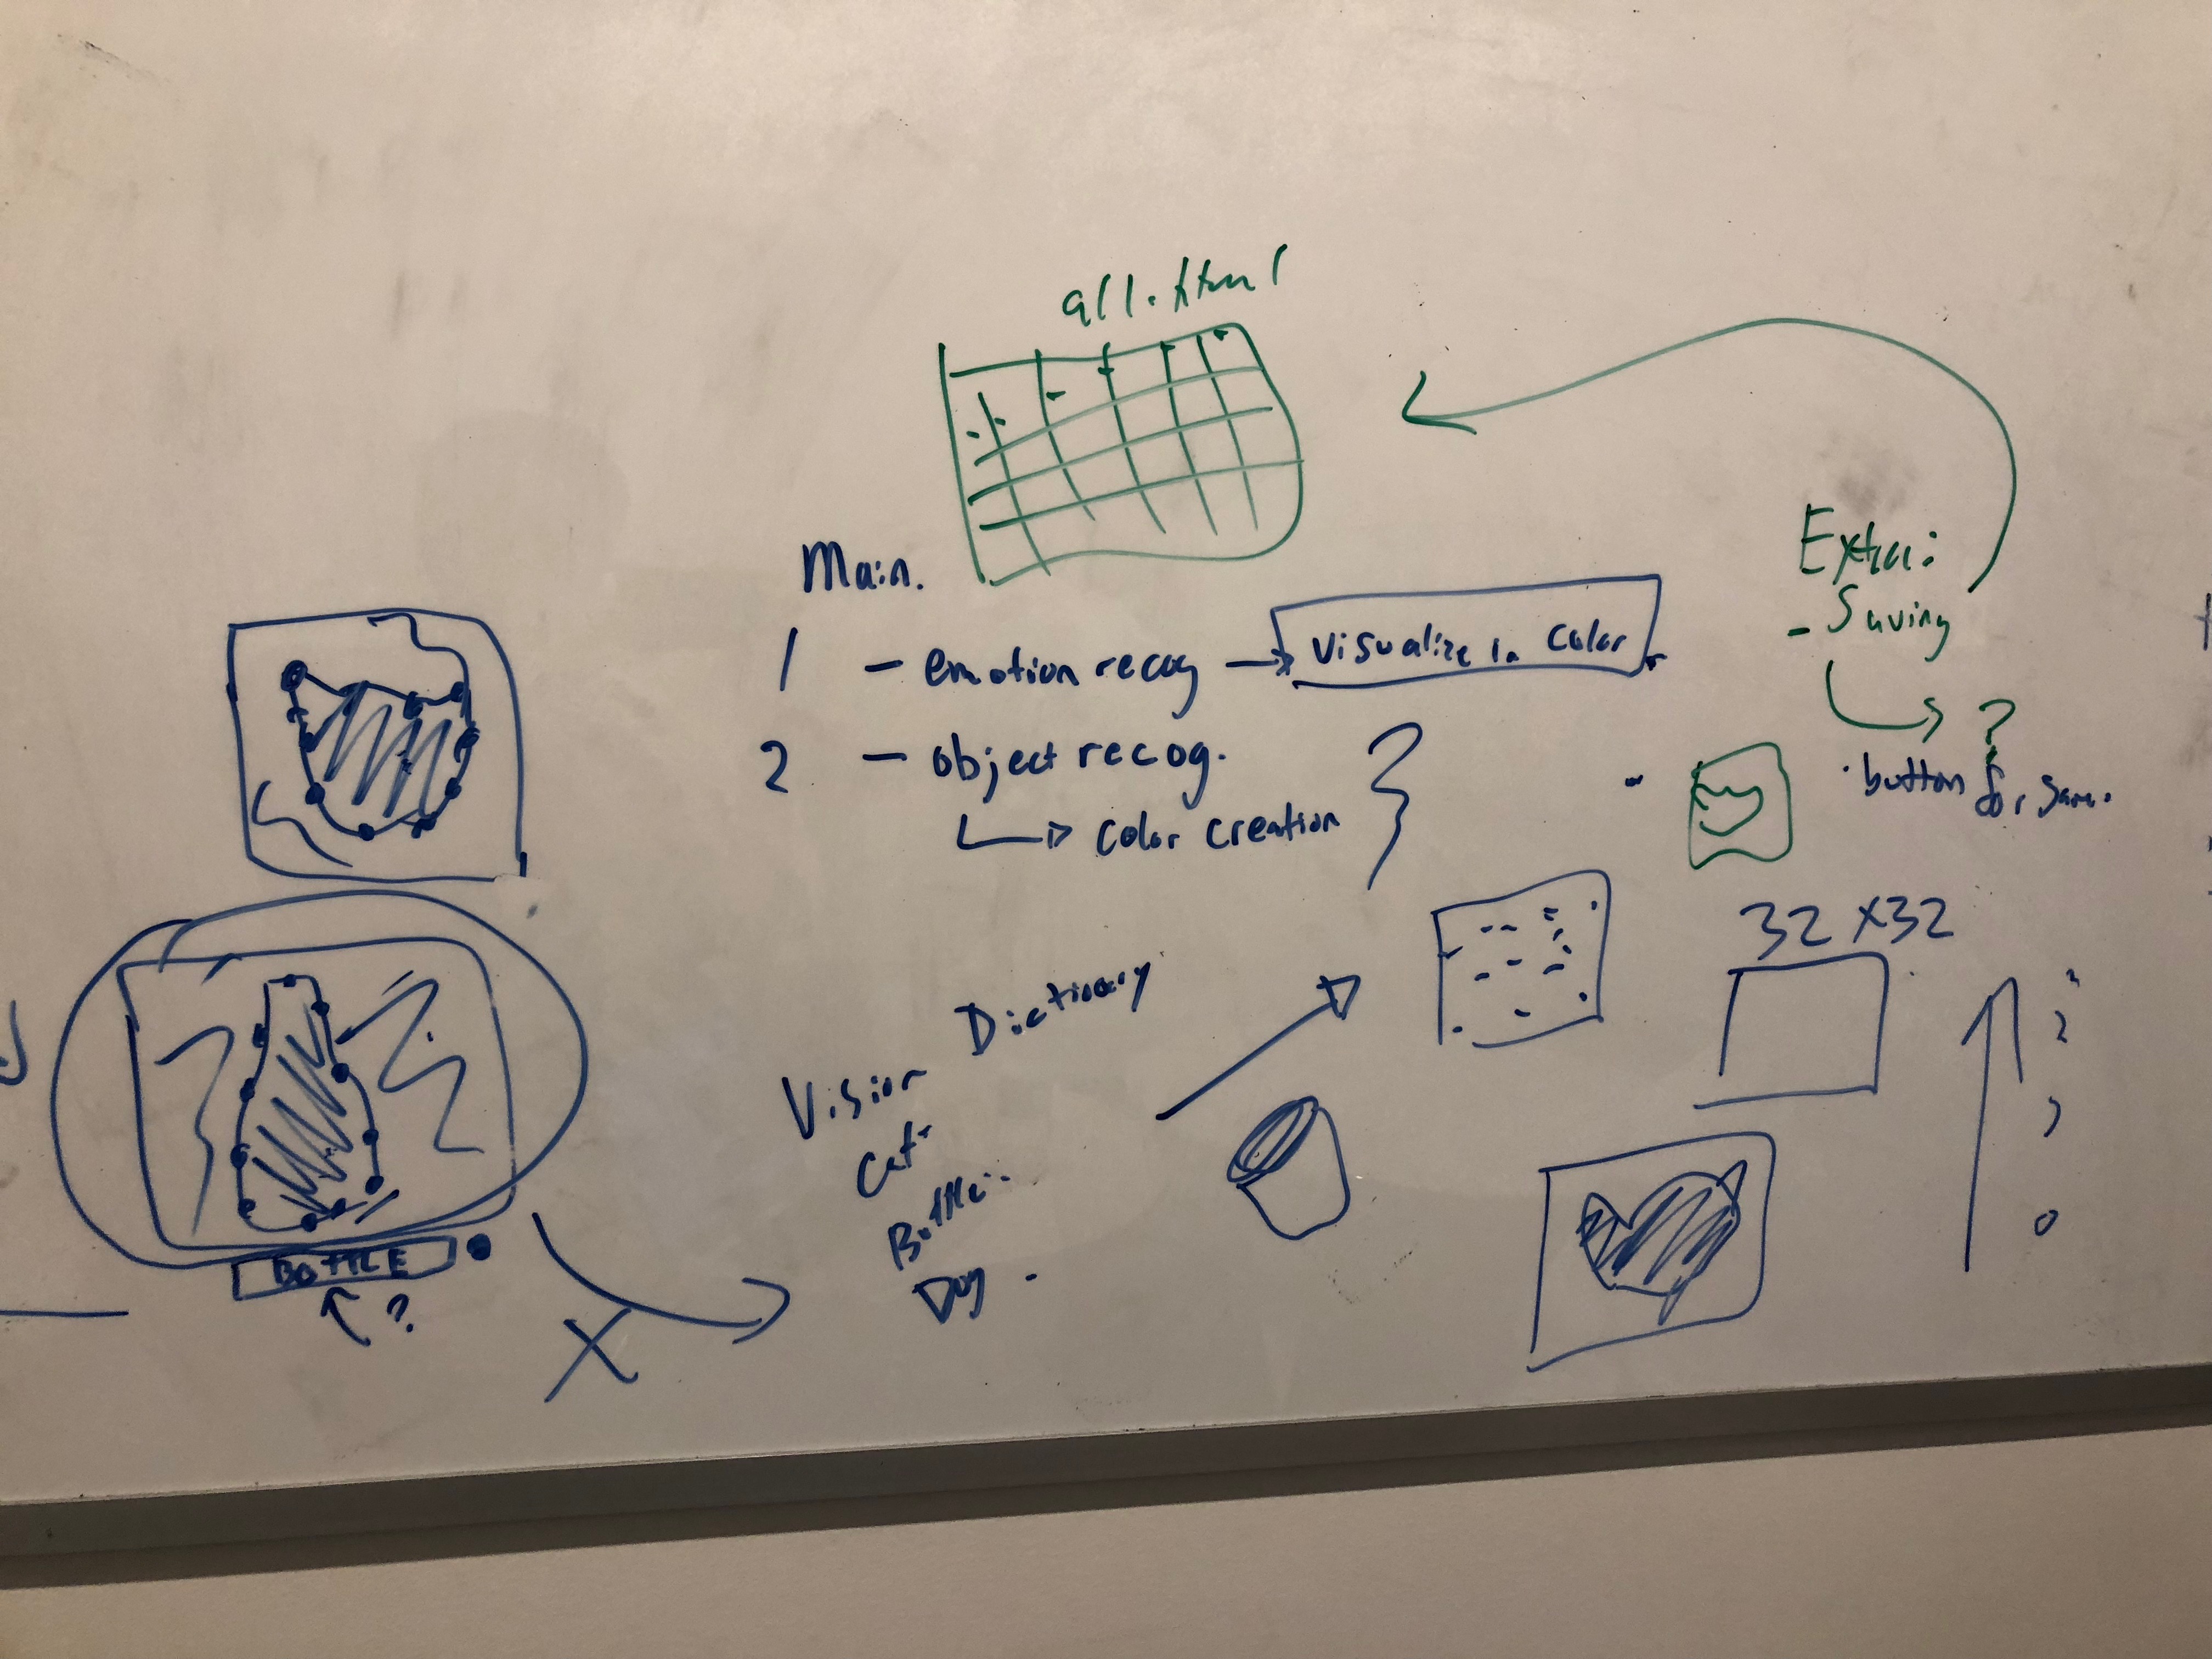 all.html
Main.
1 - emotion recog → Visualize in Color
2 - object recog.
→ color creation
Extra:
- Saving
?
button for
32 x 32
Vision Dictionary
Cat
Bottle
Dog
BOTTLE
?
X